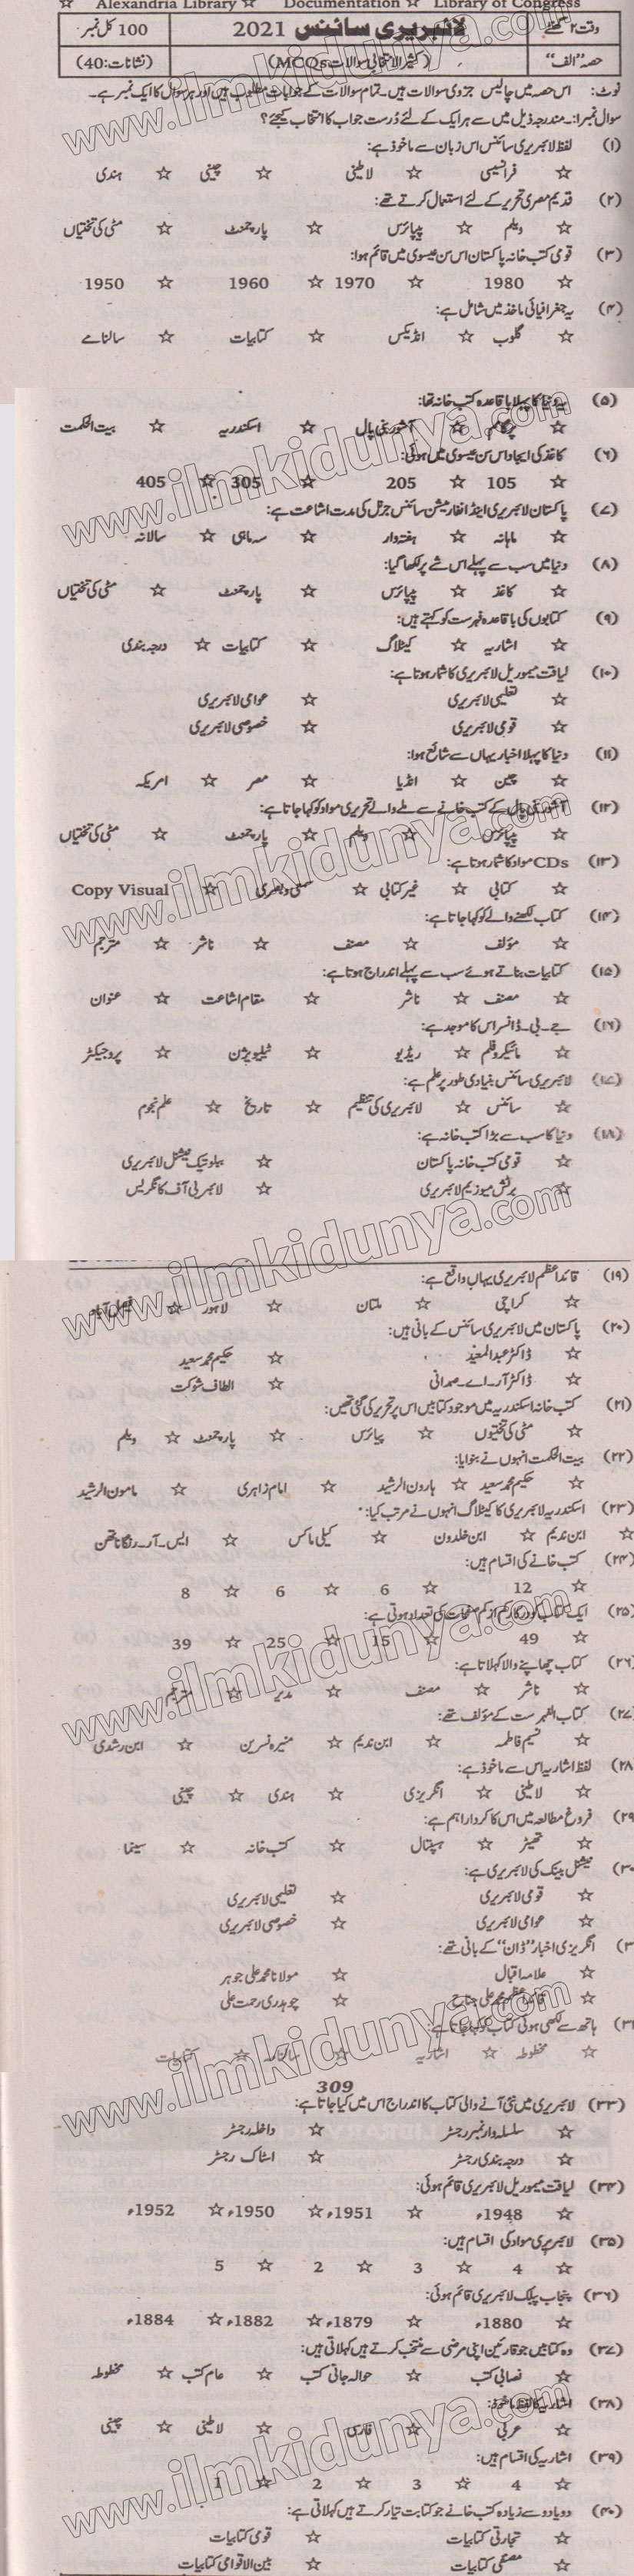 ☆ Alexandria Library ☆ Documentation ☆ Library of Congress
وقت ۲ گھنٹے لائبریری سائنس 2021 100 کل نمبر
حصہ "الف" (کثیر الانتخابی سوالات MCQs) (نشانات: 40)
نوٹ: اس حصہ میں چالیس جزوی سوالات ہیں۔ تمام سوالات کے جوابات مطلوب ہیں اور ہر سوال کا ایک نمبر ہے۔
سوال نمبر۱:۔ مندرجہ ذیل میں سے ہر ایک کے لئے درست جواب کا انتخاب کیجئے؟
(۱) لفظ لائبریری سائنس اس زبان سے ماخوذ ہے:
☆ فرانسیسی ☆ لاطینی ☆ چینی ☆ ہندی
(۲) قدیم مصری تحریر کے لئے استعمال کرتے تھے:
☆ ویلم ☆ پیپائرس ☆ پارچمنٹ ☆ مٹی کی تختیاں
(۳) قومی کتب خانہ پاکستان اس سن عیسوی میں قائم ہوا:
☆ 1980 ☆ 1970 ☆ 1960 ☆ 1950
(۴) یہ جغرافیائی ماخذ میں شامل ہے:
☆ گلوب ☆ انڈیکس ☆ کتابیات ☆ سالنامے
(۵) یہ دنیا کا پہلا باقاعدہ کتب خانہ تھا:
☆ پرگامم ☆ آشور بنی پال ☆ اسکندریہ ☆ بیت الحکمت
(۶) کاغذ کی ایجاد اس سن عیسوی میں ہوئی:
☆ 105 ☆ 205 ☆ 305 ☆ 405
(۷) پاکستان لائبریری اینڈ انفارمیشن سائنس جرنل کی مدت اشاعت ہے:
☆ ماہانہ ☆ ہفتہ وار ☆ سہ ماہی ☆ سالانہ
(۸) دنیا میں سب سے پہلے اس شے پر لکھا گیا:
☆ کاغذ ☆ پیپائرس ☆ پارچمنٹ ☆ مٹی کی تختیاں
(۹) کتابوں کی باقاعدہ فہرست کو کہتے ہیں:
☆ اشاریہ ☆ کیٹلاگ ☆ کتابیات ☆ درجہ بندی
(۱۰) لیاقت میموریل لائبریری کا شمار ہوتا ہے:
☆ تعلیمی لائبریری ☆ عوامی لائبریری
☆ قومی لائبریری ☆ خصوصی لائبریری
(۱۱) دنیا کا پہلا اخبار یہاں سے شائع ہوا:
☆ چین ☆ انڈیا ☆ مصر ☆ امریکہ
(۱۲) آشور بنی پال کے کتب خانے سے ملے والے تحریری مواد کو کہا جاتا ہے:
☆ پیپائرس ☆ ویلم ☆ پارچمنٹ ☆ مٹی کی تختیاں
(۱۳) CDs مواد کا شمار ہوتا ہے:
☆ کتابی ☆ غیر کتابی ☆ سمعی و بصری ☆ Copy Visual
(۱۴) کتاب لکھنے والے کو کہا جاتا ہے:
☆ مؤلف ☆ مصنف ☆ ناشر ☆ مترجم
(۱۵) کتابیات بناتے ہوئے سب سے پہلے اندراج ہوتا ہے:
☆ مصنف ☆ ناشر ☆ مقام اشاعت ☆ عنوان
(۱۶) جے۔بی۔ڈانسر اس کا موجد ہے:
☆ مائیکروفلم ☆ ریڈیو ☆ ٹیلیویژن ☆ پروجیکٹر
(۱۷) لائبریری سائنس بنیادی طور پر علم ہے:
☆ سائنس ☆ لائبریری کی تنظیم ☆ تاریخ ☆ علم نجوم
(۱۸) دنیا کا سب سے بڑا کتب خانہ ہے:
☆ قومی کتب خانہ پاکستان ☆ ببلوتیک نیشنل لائبریری
☆ برٹش میوزیم لائبریری ☆ لائبریری آف کانگریس
(۱۹) قائداعظم لائبریری یہاں واقع ہے:
☆ کراچی ☆ ملتان ☆ لاہور ☆ فیصل آباد
(۲۰) پاکستان میں لائبریری سائنس کے بانی ہیں:
☆ ڈاکٹر عبدالمعید ☆ حکیم محمد سعید
☆ ڈاکٹر آر۔اے۔صمدانی ☆ الطاف شوکت
(۲۱) کتب خانہ اسکندریہ میں موجود کتابیں اس پر تحریر کی گئی تھیں:
☆ مٹی کی تختیوں ☆ پیپائرس ☆ پارچمنٹ ☆ ویلم
(۲۲) بیت الحکمت انہوں نے بنوایا:
☆ حکیم محمد سعید ☆ ہارون الرشید ☆ امام زاہری ☆ مامون الرشید
(۲۳) اسکندریہ لائبریری کا کیٹلاگ انہوں نے مرتب کیا:
☆ ابن ندیم ☆ ابن خلدون ☆ کیلی ماکس ☆ ایس۔آر۔رنگاناتھن
(۲۴) کتب خانے کی اقسام ہیں:
☆ 12 ☆ 6 ☆ 6 ☆ 8
(۲۵) ایک کتاب اور کم از کم صفحات کی تعداد ہوتی ہے:
☆ 49 ☆ 15 ☆ 25 ☆ 39
(۲۶) کتاب چھاپنے والا کہلاتا ہے:
☆ ناشر ☆ مصنف ☆ مدیر ☆ مترجم
(۲۷) کتاب الفہرست کے مؤلف تھے:
☆ نسیم فاطمہ ☆ ابن ندیم ☆ منیرہ نسرین ☆ ابن رشدی
(۲۸) لفظ اشاریہ اس سے ماخوذ ہے:
☆ لاطینی ☆ انگریزی ☆ ہندی ☆ چینی
(۲۹) فروغ مطالعہ میں اس کا کردار اہم ہے:
☆ تھیٹر ☆ ہسپتال ☆ کتب خانہ ☆ سینما
(۳۰) نیشنل بینک کی لائبریری ہے:
☆ قومی لائبریری ☆ تعلیمی لائبریری
☆ عوامی لائبریری ☆ خصوصی لائبریری
(۳ انگریزی اخبار "ڈان" کے بانی تھے:
☆ علامہ اقبال ☆ مولانا محمد علی جوہر
☆ قائداعظم محمد علی جناح ☆ چوہدری رحمت علی
(۳۲ ہاتھ سے لکھی ہوئی کتاب کو کہا جاتا ہے:
☆ مخطوطہ ☆ اشاریہ ☆ سالنامہ ☆ کتابیات
309
(۳۳) لائبریری میں نئی آنے والی کتاب کا اندراج اس میں کیا جاتا ہے:
☆ سلسلہ وار نمبر رجسٹر ☆ داخلہ رجسٹر
☆ درجہ بندی رجسٹر ☆ اسٹاک رجسٹر
(۳۴) لیاقت میموریل لائبریری قائم ہوئی:
☆ 1948ء ☆ 1951ء ☆ 1950ء ☆ 1952ء
(۳۵) لائبریری مواد کی اقسام ہیں:
☆ 4 ☆ 3 ☆ 2 ☆ 5
(۳۶) پنجاب پبلک لائبریری قائم ہوئی:
☆ 1880ء ☆ 1879ء ☆ 1882ء ☆ 1884ء
(۳۷) وہ کتابیں جو قارئین اپنی مرضی سے منتخب کرتے ہیں کہلاتی ہیں:
☆ نصابی کتب ☆ حوالہ جاتی کتب ☆ عام کتب ☆ مخطوطہ
(۳۸) اشاریہ کا لفظ ماخوذ:
☆ عربی ☆ فارسی ☆ لاطینی ☆ چینی
(۳۹) اشاریہ کی اقسام ہیں:
☆ 4 ☆ 3 ☆ 2 ☆ 1
(۴۰) دو یا دو سے زیادہ کتب خانے جو کتابت تیار کرتے ہیں کہلاتی ہے:
☆ تجارتی کتابیات ☆ قومی کتابیات
☆ مصنفی کتابیات ☆ بین الاقوامی کتابیات
www.ilmkidunya.com
www.ilmkidunya.com
www.ilmkidunya.com
www.ilmkidunya.com
www.ilmkidunya.com
www.ilmkidunya.com
www.ilmkidunya.com